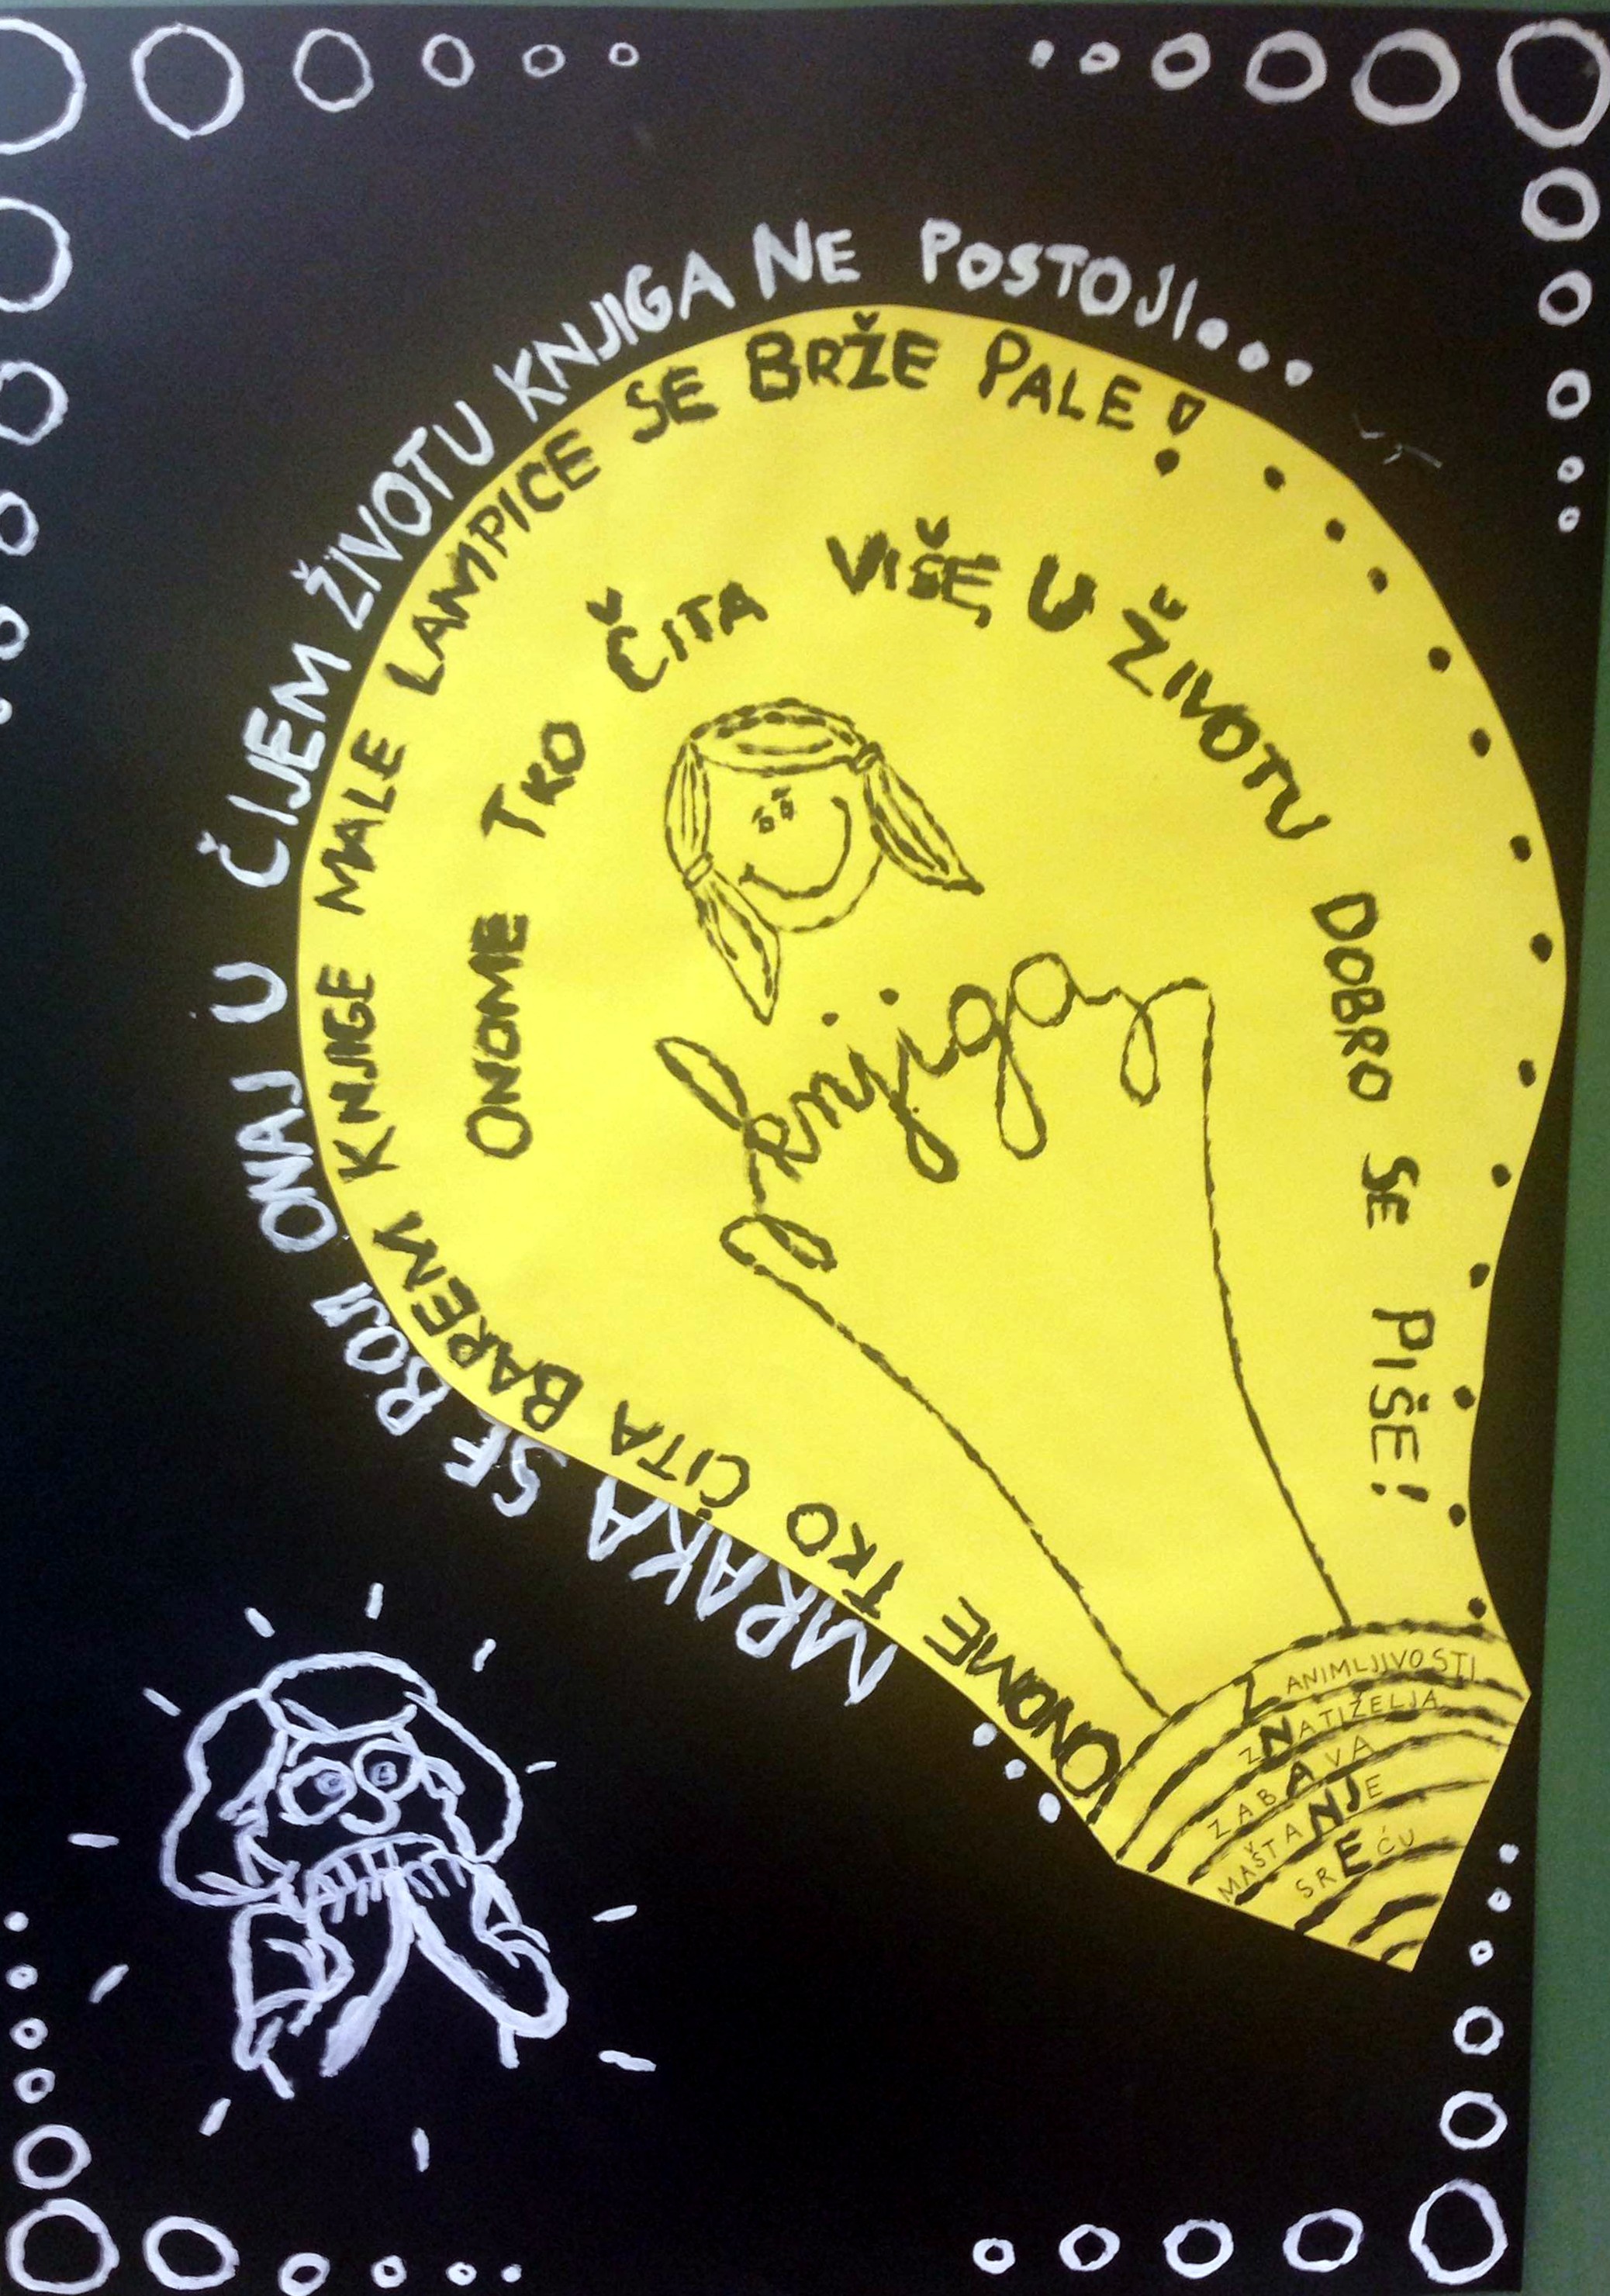 ...MRAKA SE BOJI ONAJ U ČIJEM ŽIVOTU KNJIGA NE POSTOJI...
ONOME TKO ČITA BAREM KNJIGE MALE LAMPICE SE BRŽE PALE!
ONOME TKO ČITA VIŠE, U ŽIVOTU DOBRO SE PIŠE!
knjiga
ZANIMLJIVOSTI
ZNATIŽELJA
ZABAVA
MAŠTANJE
SREĆU